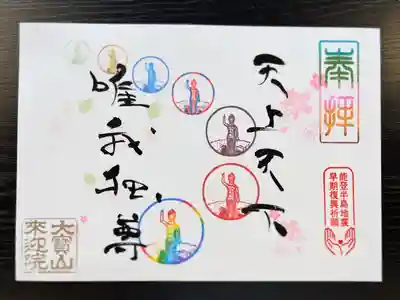 奉拝
天上天下
唯我独尊
能登半島地震
早期復興祈願
大寶山
来迎院